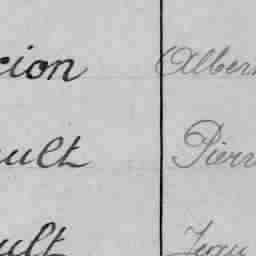 cion Albert
ault Pierr
ult